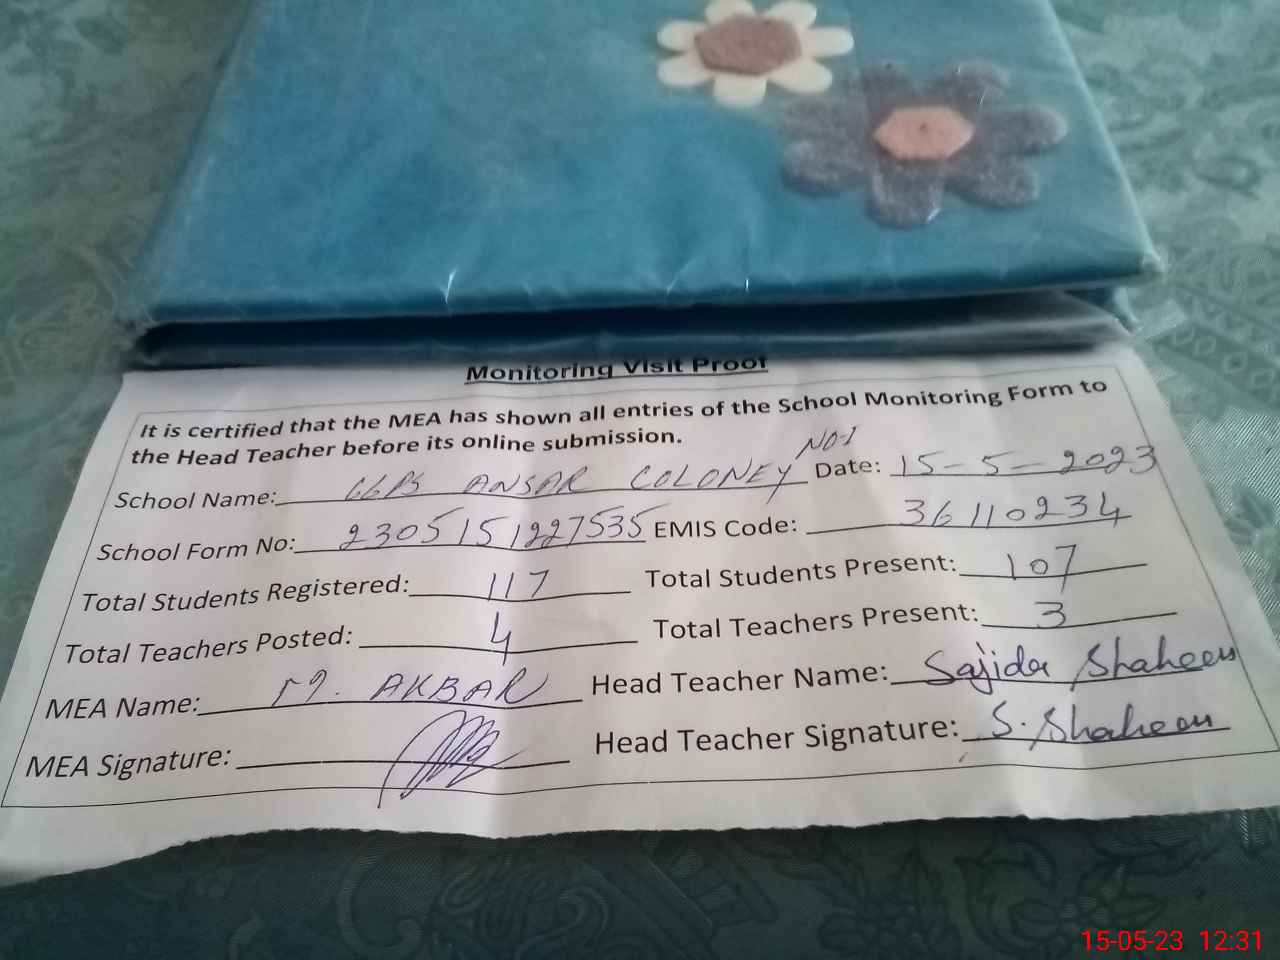 Monitoring Visit Proof
It is certified that the MEA has shown all entries of the School Monitoring Form to
the Head Teacher before its online submission.
School Name: GGPS ANSAR COLONEY NO-1 Date: 15-5-2023
School Form No: 2305151227535 EMIS Code: 36110234
Total Students Registered: 117 Total Students Present: 107
Total Teachers Posted: 4 Total Teachers Present: 3
MEA Name: M. AKBAR Head Teacher Name: Sajida Shaheen
MEA Signature: Head Teacher Signature: S. Shaheen
15-05-23 12:31